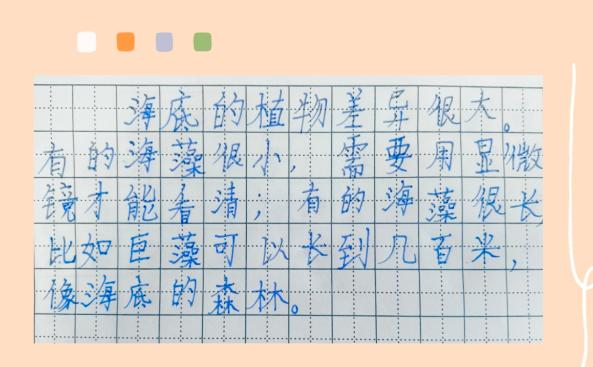 海底的植物差异很大。
有的海藻很小，需要用显微
镜才能看清；有的海藻很长，
比如巨藻可以长到几百米，
像海底的森林。